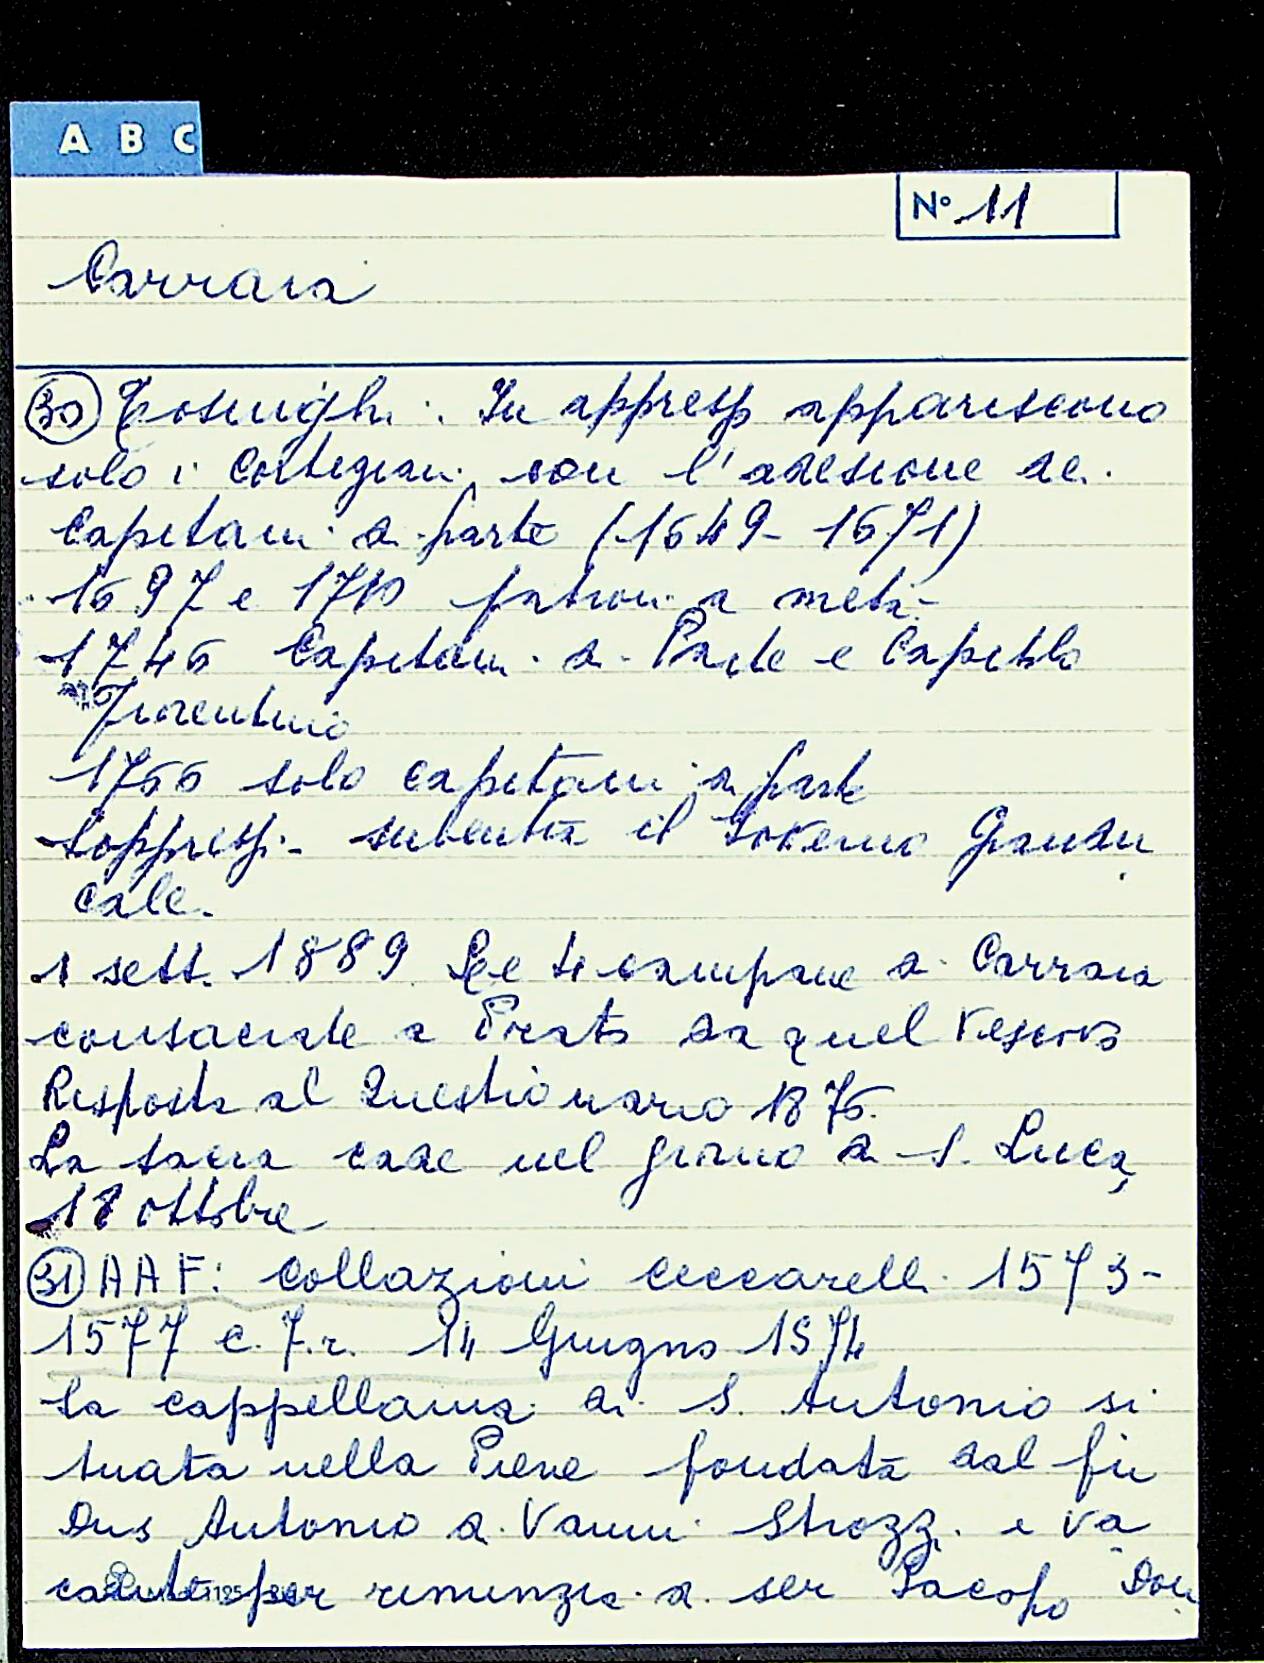 A B C
N° 11
Carraia
30 Tosinghi: In appresso appariscono
solo i Cortigiani, con l'adesione dei
Capitani di parte (1649-1671)
1697 e 1710 patroni a metà-
1746 Capitani di Parte e Capitolo
Fiorentino
1766 solo capitani di parte
Soppressi- subentra il Governo Grandu
cale.
1 sett. 1889 Le 4 campane di Carraia
consacrate a Prato da quel Vescovo
Risposta al Questionario 1876.
La sacra cade nel giorno di S. Luca,
18 ottobre
31 AAF: Collazioni Ceccarelli 1573-
1577 c. 7.r. 14 Giugno 1574
la cappellania di S. Antonio si
tuata nella Pieve fondata dal fu
Dns Antonio di Vanni Strozzi e va
cante per renunzia di ser Jacopo Don